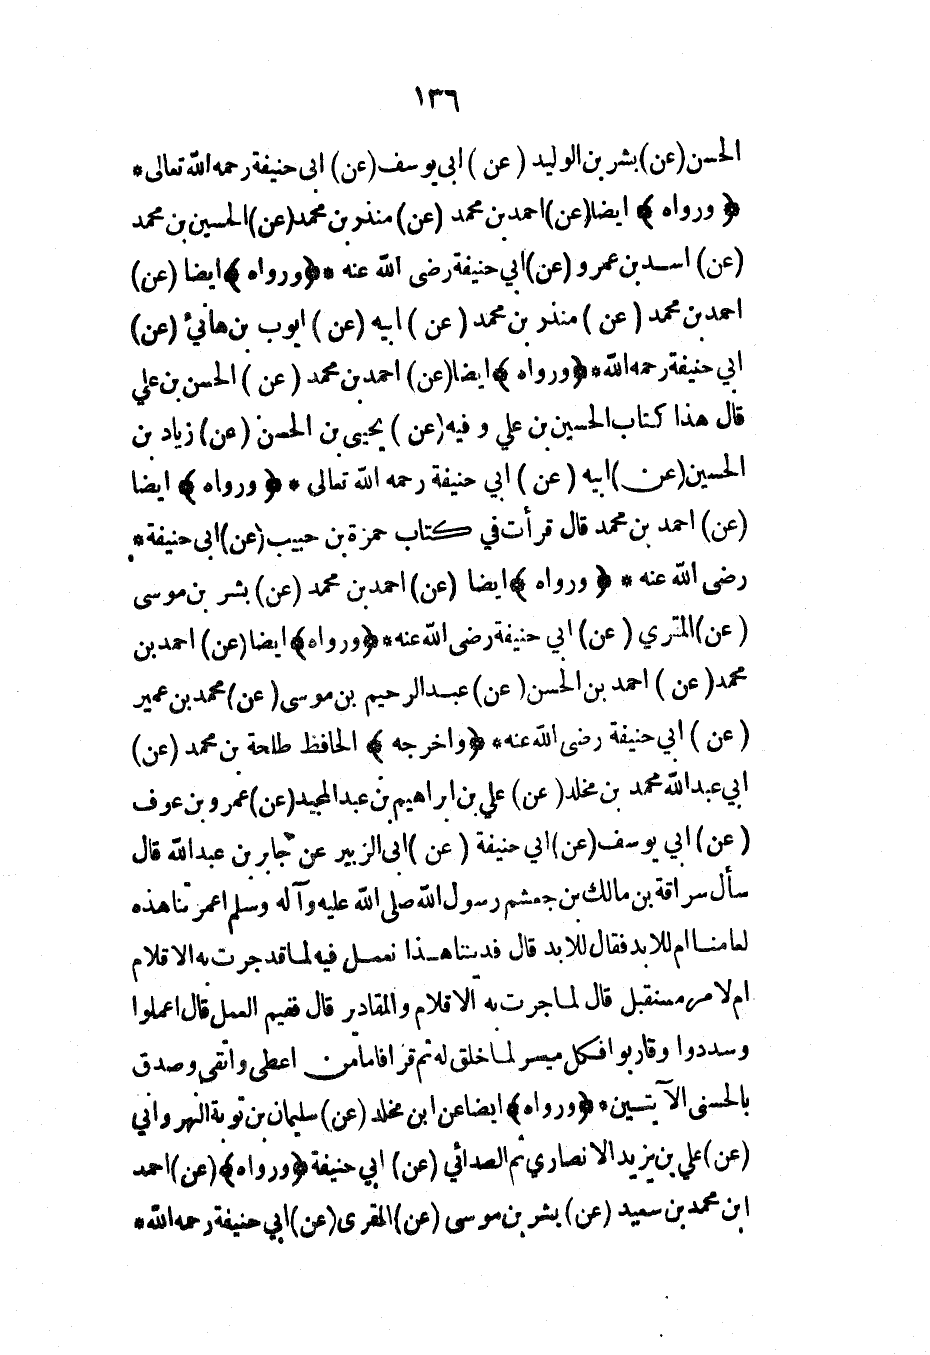 ١٣٦
الحسن (عن) بشر بن الوليد ( عن ) ابي يوسف (عن) ابي حنيفة رحمه الله تعالى *
﴿ ورواه ﴾ ايضا (عن) احمد بن محمد (عن) منذر بن محمد (عن) الحسين بن محمد
(عن) اسد بن عمرو (عن) ابي حنيفة رضى الله عنه * ﴿ورواه﴾ ايضا (عن)
احمد بن محمد ( عن ) منذر بن محمد ( عن ) ابيه (عن ) ايوب بن هاني (عن)
ابي حنيفة رحمه الله * ﴿ورواه﴾ ايضا (عن) احمد بن محمد ( عن ) الحسن بن علي
قال هذا كتاب الحسين بن علي و فيه (عن ) يحيى بن الحسن (عن) زياد بن
الحسين (عن) ابيه ( عن ) ابي حنيفة رحمه الله تعالى * ﴿ ورواه ﴾ ايضا
(عن) احمد بن محمد قال قرأت في كتاب حمزة بن حبيب (عن) ابي حنيفة *
رضى الله عنه * ﴿ ورواه ﴾ ايضا (عن) احمد بن محمد (عن) بشر بن موسى
( عن) المقري ( عن) ابي حنيفة رضى الله عنه * ﴿ورواه﴾ ايضا (عن) احمد بن
محمد ( عن ) احمد بن الحسن ( عن) عبد الرحيم بن موسى ( عن) محمد بن عمير
( عن ) ابي حنيفة رضى الله عنه * ﴿واخرجه ﴾ الحافظ طلحة بن محمد (عن)
ابي عبد الله محمد بن مخلد ( عن) علي بن ابراهيم بن عبد المجيد (عن) عمرو بن عوف
( عن) ابي يوسف (عن) ابي حنيفة ( عن ) ابي الزبير عن جابر بن عبد الله قال
سأل سراقة بن مالك بن جعشم رسول الله صلى الله عليه وآله وسلم اعمرتنا هذه
لعامنا ام للابد فقال للابد قال فديننا هذا نعمل فيه لما قد جرت به الاقلام
ام لامر مستقبل قال لما جرت به الاقلام والمقادير قال ففيم العمل قال اعملوا
وسددوا وقاربوا فكل ميسر لما خلق له ثم قرأ فاما من اعطى واتقى وصدق
بالحسنى الآيتين * ﴿ورواه﴾ ايضا عن ابن مخلد (عن) سليمان بن توبة النهرواني
(عن) علي بن يزيد الانصاري ثم الصدائي (عن) ابي حنيفة ﴿ورواه﴾ (عن) احمد
ابن محمد بن سعيد (عن) بشر بن موسى (عن) المقرى (عن) ابي حنيفة رحمه الله *